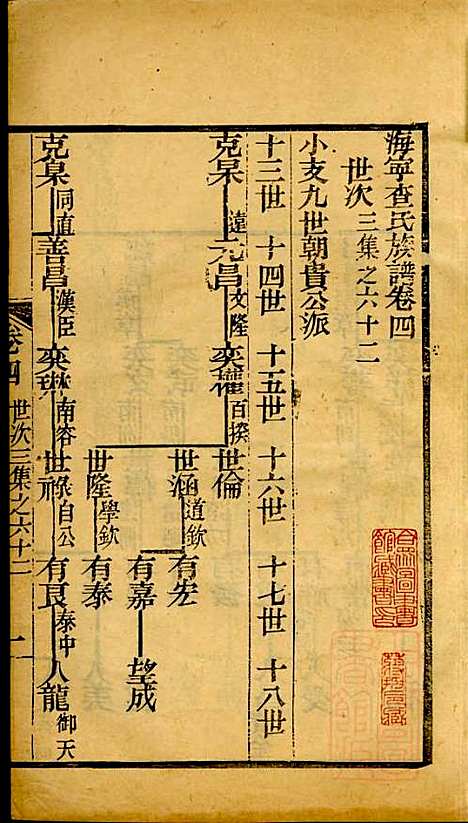 海寧查氏族譜卷四
世次三集之六十二
小支九世朝貴公派
十三世 十四世 十五世 十六世 十七世 十八世
克杲 遠 元昌 文隆 奕權 百揆 世倫
世涵 道欽 有宏
有嘉 望成
世隆 學欽 有泰
克杲 同直 善昌 漢臣 奕琳 南容 世祿 自公 有良 泰中 人龍 御天
卷四 世次三集之六十二 一